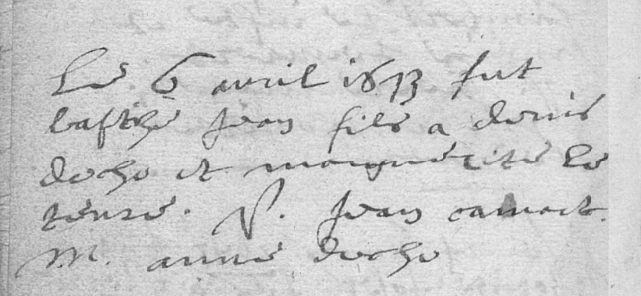 Le 6 avril 1613 fut
baptise Jean fils a denis
doche et marguerite le
P. Jean
M. anne doche